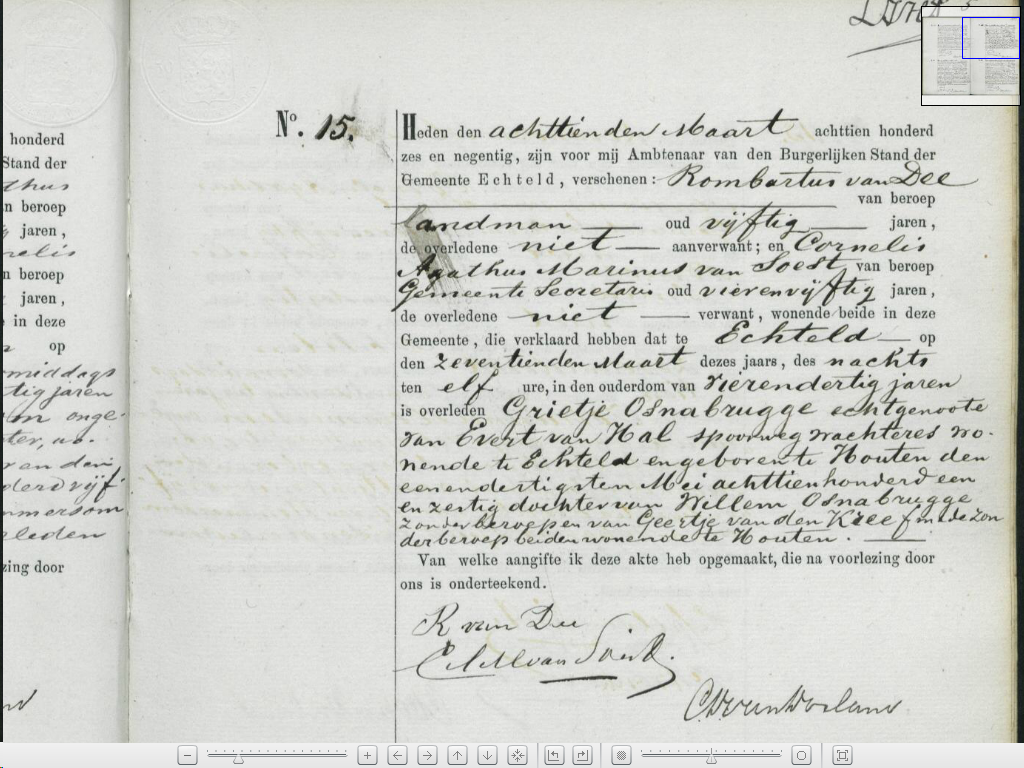 honderd
Stand der
n beroep
jaren,
n beroep
jaren,
in deze
op
middags
tig jaren
onge-
leden
zing door
No. 15.
Heden den achttienden Maart achttien honderd
zes en negentig, zijn voor mij Ambtenaar van den Burgerlijken Stand der
Gemeente Echteld, verschenen: Rombartus van Dee
van beroep
landman oud vijftig jaren,
de overledene niet aanverwant; en Cornelis
Agathus Marinus van Soest, van beroep
Gemeente Secretaris oud vierenvijftig jaren,
de overledene niet verwant, wonende beide in deze
Gemeente, die verklaard hebben dat te Echteld op
den zeventienden Maart dezes jaars, des nachts
ten elf ure, in den ouderdom van vierendertig jaren
is overleden Grietje Osnabrugge echtgenoote
van Evert van Hal spoorwegwachteres wo-
nende te Echteld en geboren te Houten den
eenendertigsten Mei achttienhonderd een
en zestig dochter van Willem Osnabrugge
zonder beroep en van Geertje van den mede zon
der beroep beiden wonende te Houten.
Van welke aangifte ik deze akte heb opgemaakt, die na voorlezing door
ons is onderteekend.
R van Dee
CAM van Soest.